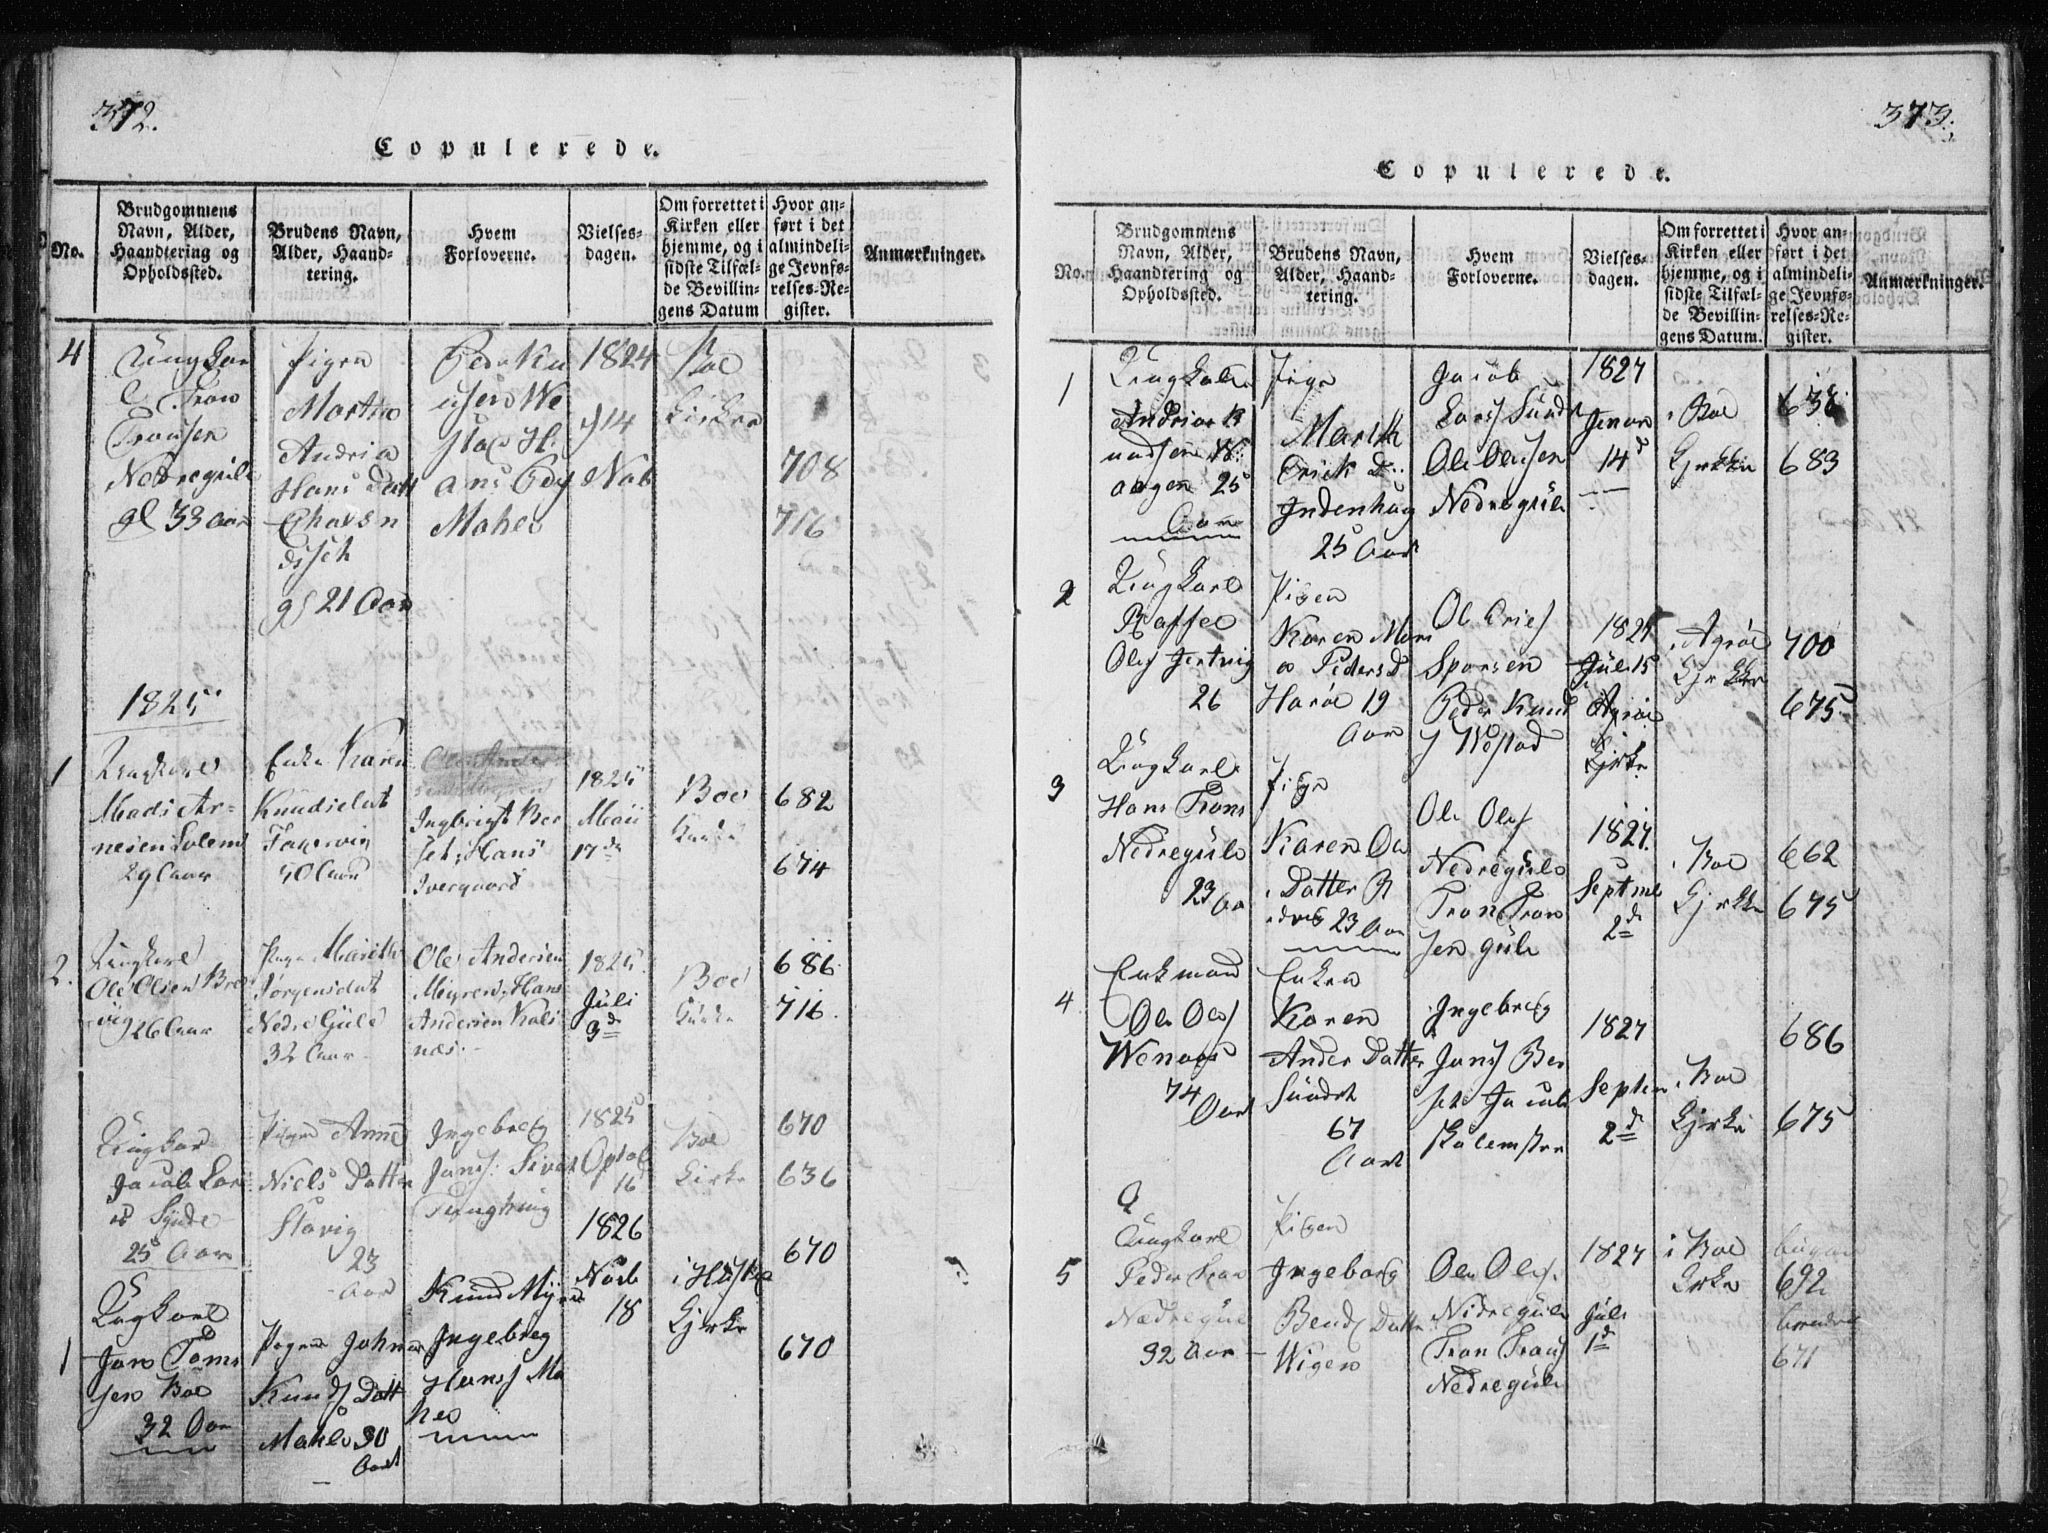 372.
Copulerede.
No.
Brudgommens
Navn, Alder,
Haandtering og
Opholdssted.
Brudens Navn,
Alder, Haand-
tering.
Hvem
Forloverne.
Vielses-
dagen.
Om forrettet i
Kirken eller
hjemme, og i
sidste Tilfæl-
de Bevillin-
gens Datum
Hvor an-
ført i det
almindeli-
ge Jevnfø-
relses-Re-
gister.
Anmærkninger.
4
Ungkar
Tron
Tronsen
Nedregule
gl 33 Aar
Pigen
Marthe
Andria
Hans Datt
gl 21 Aar
Peder Kn
usen We
stad H
ans Ped
Mahle
1824
14
Nov
Boe
Kirken
708
716
1825
1
Ungkarl
Mads Ar-
nesen Solem
29 Aar
Enke Karen
Knudsdat
Fagervig
50 Aar
Ole Ander-
Ingbrigt Ber
set, Hans
Ivergaard
1825
Maii
17de
Boe
Kirke
682
674
2.
Ungkarl
Ole Olsen Bre
vig 26 Aar
Pige Marith
Jørgensdat
Nedre Gule
32 Aar
Ole Andersen
Myren, Hans
Andersen Kals
næs.
1825.
Juli
3d
Boe
Kirke
686
716
Ungkar
Jacob Lar
s Synde
25 Aar
Pigen Anne
Niels Datter
Stavig
23
Aar
Ingebreg
Jans: Sivert
1825
Optob
16
Boe
Kirke
670
636
1
Ungkarl
Jan Toms
sen Boe
32 Aar
Pigen Johna
Knuds Datt
Mahle 30
Aar
Knud Myre
Ingebreg
Hanss Ma
hle
1826
Novb
18
i Hustad
Kjrke
670
670
373.
Copulerede.
No.
Brudgommens
Navn, Alder,
Haandtering og
Opholdssted.
Brudens Navn,
Alder, Haand-
tering.
Hvem
Forloverne.
Vielses-
dagen.
Om forrettet i
Kirken eller
hjemme, og i
sidste Tilfæl-
de Bevillin-
gens Datum.
Hvor an-
ført i det
almindeli-
ge Jevnfø-
relses-Re-
gister.
Anmærkninger.
1
Ungkarl
Andrias K
nudsen W
aagen 25
Aar
Pige
Marith
Erick D:
Indenhaug
25 Aar
Jacob
Lars Sundt
Ole Olsen
Nedregule
1827
Jenuar
14d
i Boe
Kjrkke
638
683
2
Ungkarl
Raffel
Oles Jertvig
26
Pigen
Karen Mar
a Peders D
Harøe 19
Aar
Ole Eries
Sporsen
Peder Knud
s Westad
1827
Juli 15
Agröe
Kjrke
i Agröe
Kjrkke
700
675
3
Ungkarl
Hans Trons
Nedregule
23 Aa
Pige
Karen Ole
Datter B
23 Aar
Ole Oles
Nedregule
Tron Tron
sen gule
1827.
Septmb
2d
i Boe
Kjrkke
662
675
4
Enkmand
Ole Oles
Wenaas
74
Aart
Enken
Karen
Ander Datter
Sundt
67
Aart
Ingebreg
Jans Ber
set Jacob
Skalemster
1827
Septem
2d
i Boe
Kjrke
686
675
5
Ungkarl
Peder Tron
Nedregule
32 Aar
Pigen
Ingeborg
Bend Datter
Wigen
Ole Oles.
Nidregule
Tron Trans
Nedregule
1827
Juli
1d
i Boe
Kirke
692
671